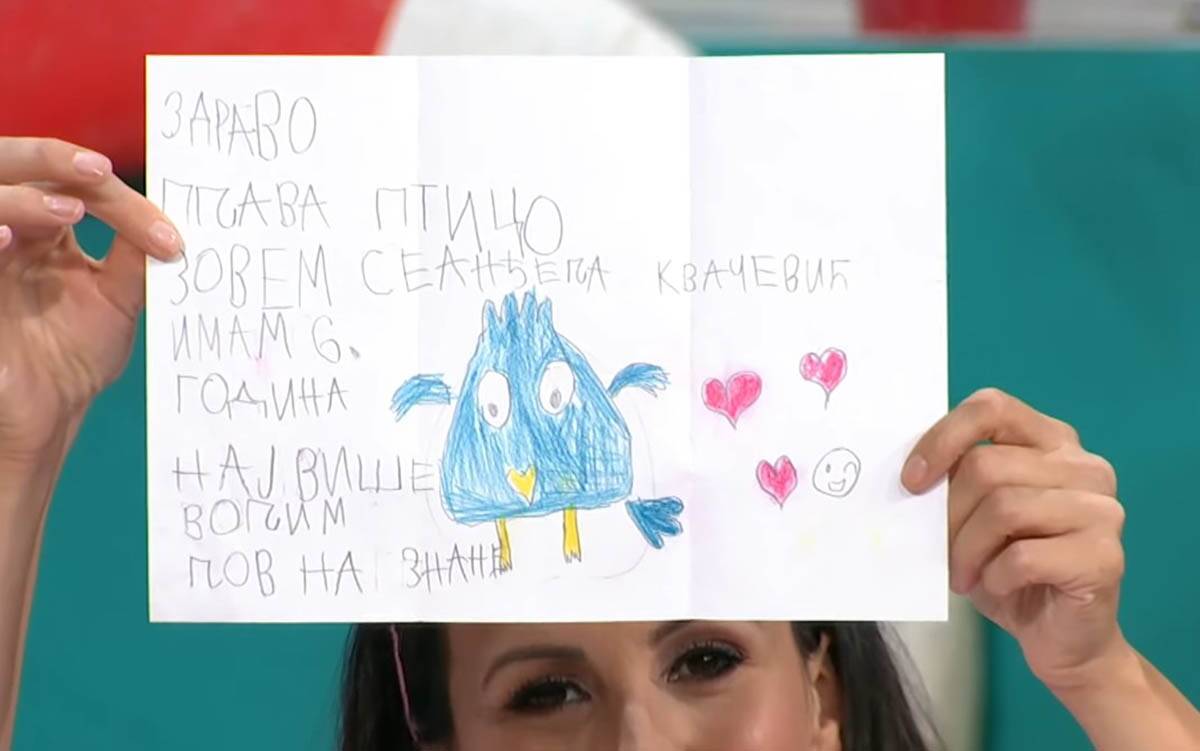 ЗАРАВО
ПЛАВА ПТИЦО
ЗОВЕМ СЕАНЂЕЛА КВАЧЕВИЋ
ИМАМ 6.
ГОДИНА
НАЈ ВИШЕ
ВОЛИМ
ЛОВ НА ЗНАНЕ